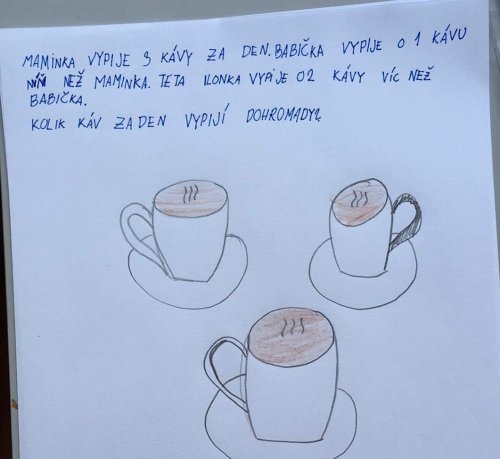 MAMINKA VYPIJE 3 KÁVY ZA DEN. BABIČKA VYPIJE O 1 KÁVU
MÍŇ NEŽ MAMINKA. TETA ILONKA VYPIJE O 2 KÁVY VÍC NEŽ
BABIČKA.
KOLIK KÁV ZA DEN VYPIJÍ DOHROMADY?